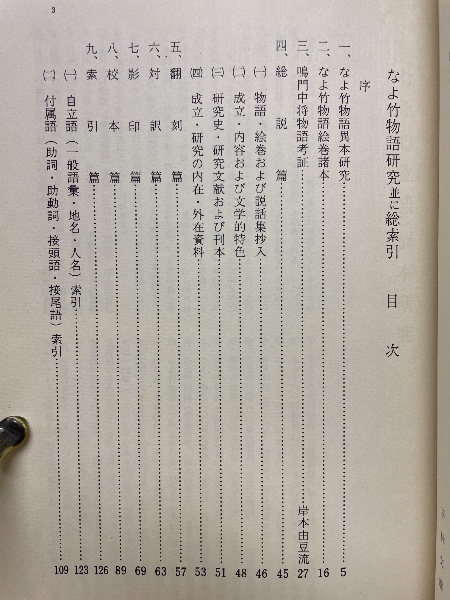 なよ竹物語研究並に総索引 目次
序
一、なよ竹物語異本研究……5
二、なよ竹物語絵巻諸本……16
三、鳴門中将物語考証……岸本由豆流 27
四、総説篇……45
㈠ 物語・絵巻および説話集抄入……46
㈡ 成立・内容および文学的特色……48
㈢ 研究史・研究文献および刊本……51
㈣ 成立・研究の内在・外在資料……53
五、翻刻篇……57
六、対訳篇……63
七、影印篇……69
八、校本篇……89
九、索引篇……126
㈠ 自立語(一般語彙・地名・人名)索引……123
㈡ 付属語(助詞・助動詞・接頭語・接尾語)索引……109
3